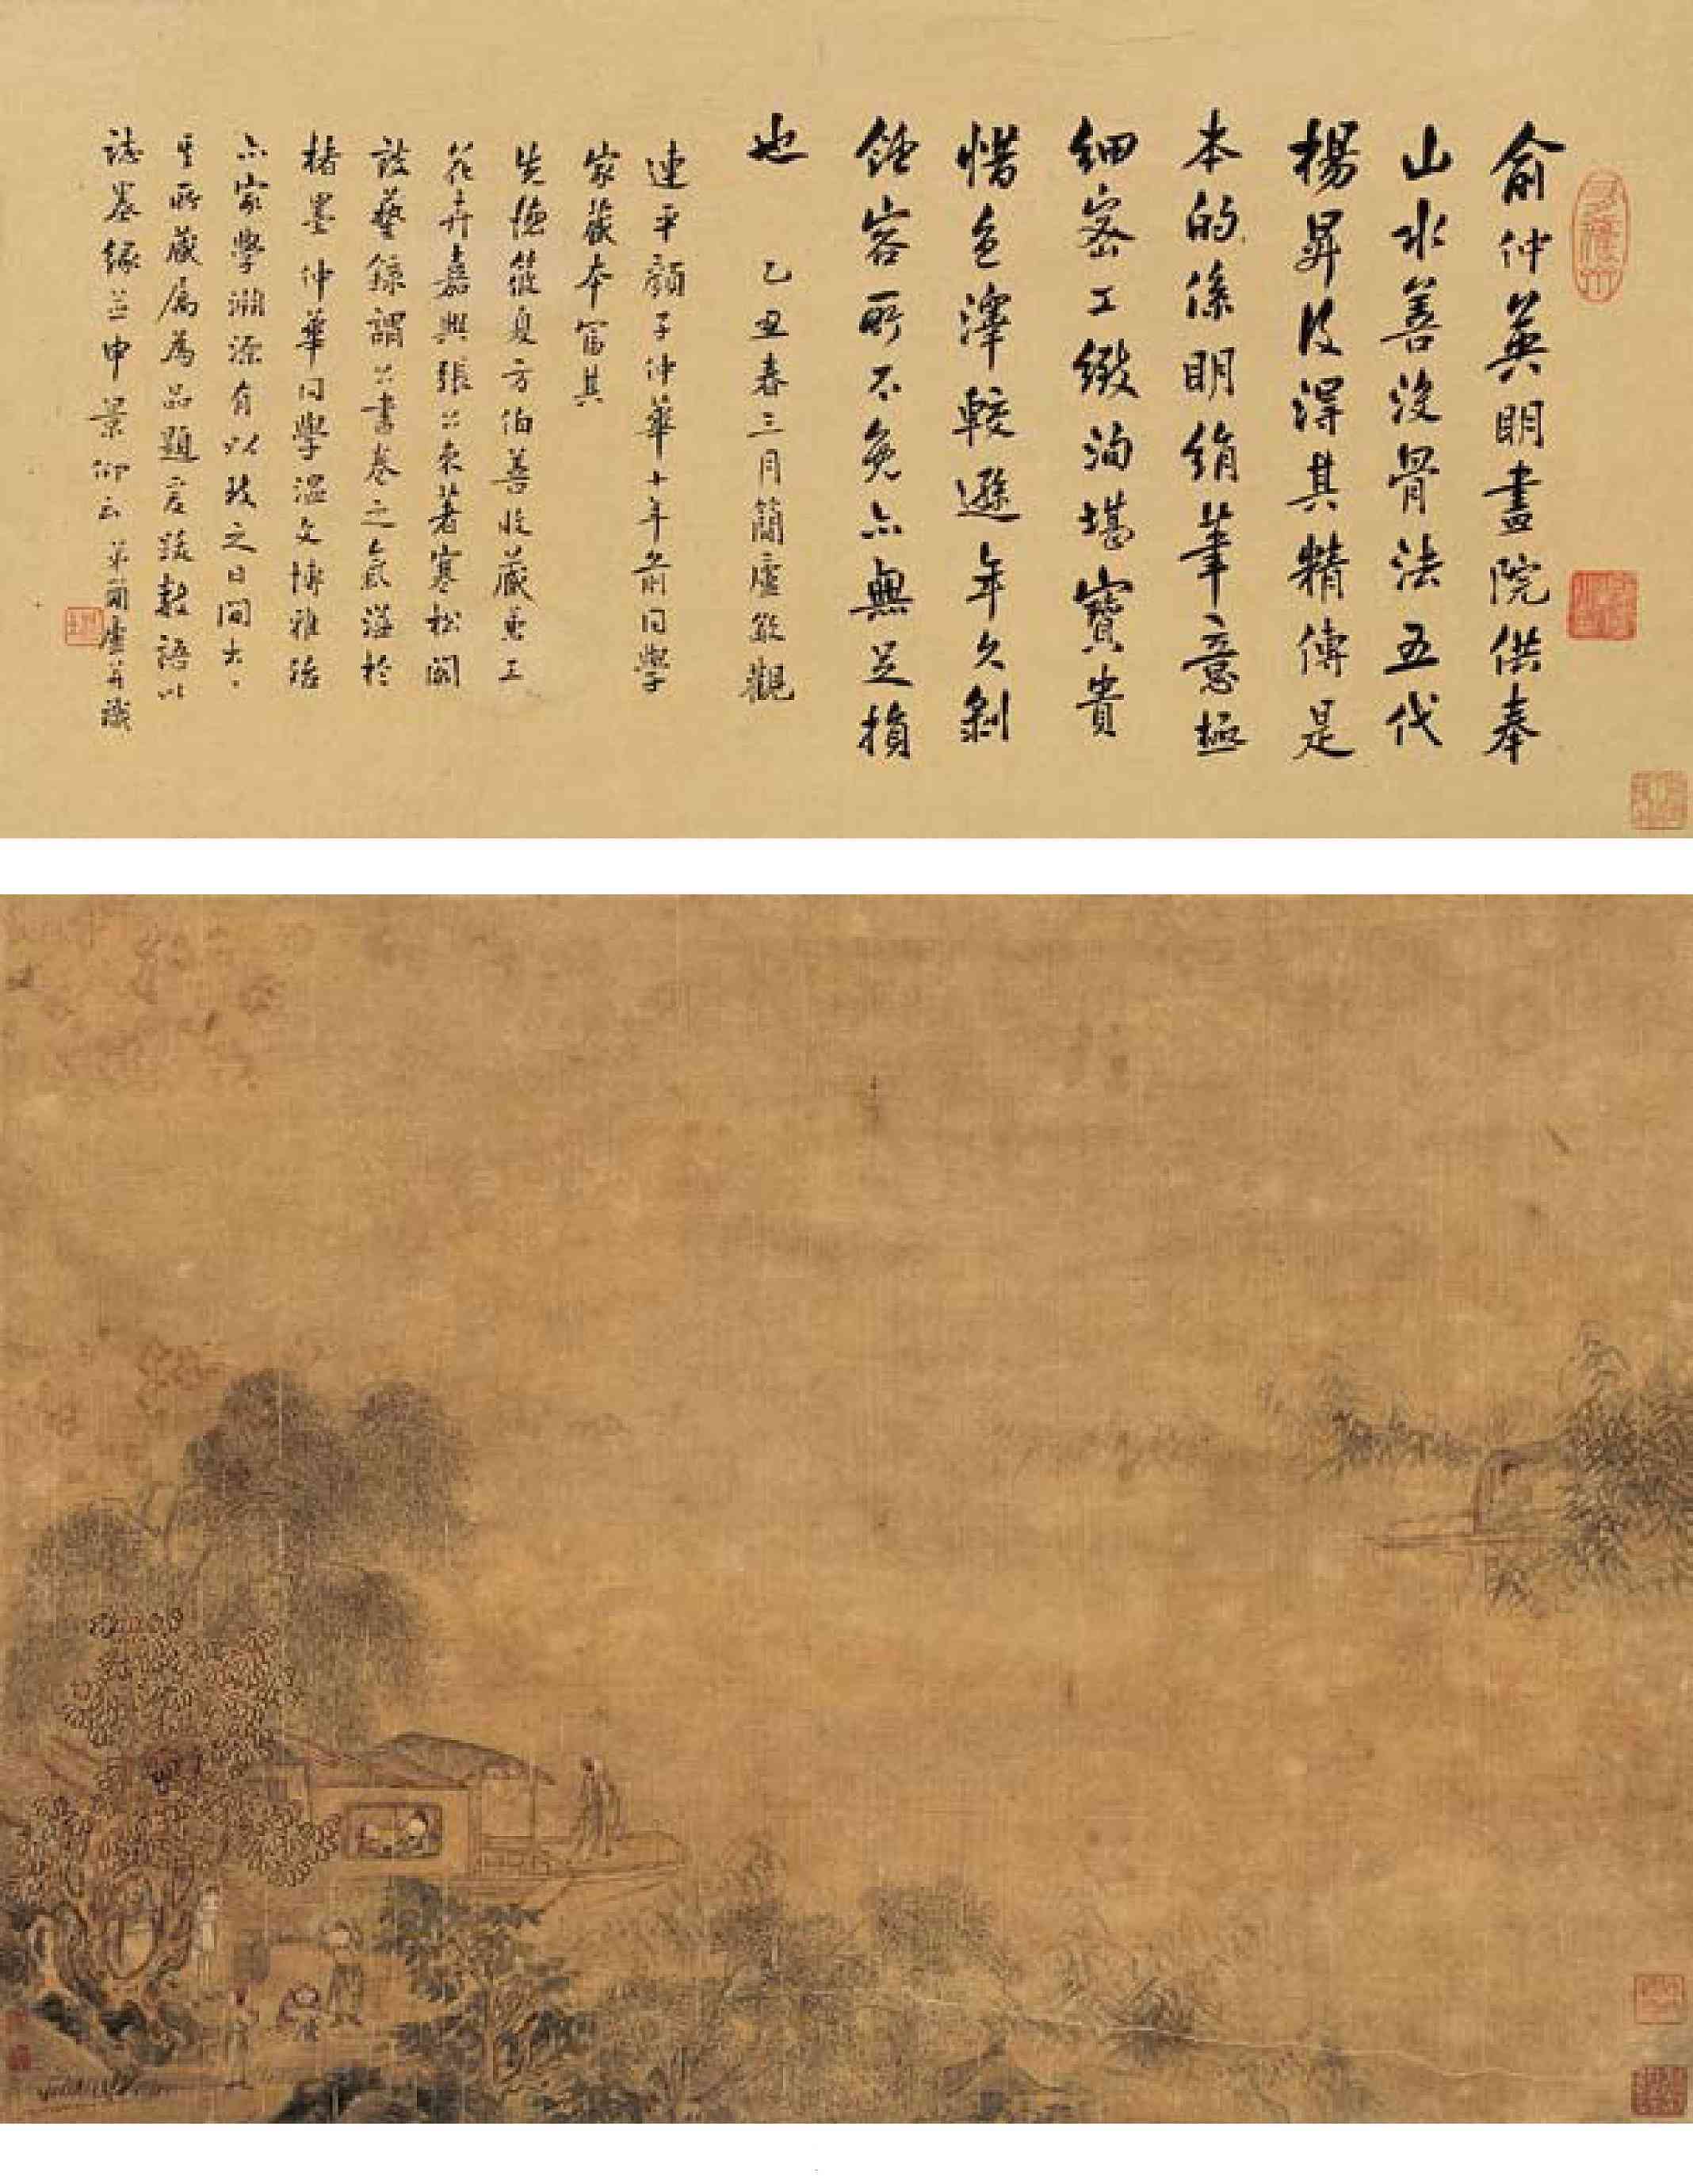 俞仲英明畫院供奉
山水善沒骨法五代
楊昇後得其精傳是
本的係明絹筆意極
細密工緻洵堪寶貴
惜色澤較遜年久剝
蝕容所不免亦無足損
也 乙丑春三月簡廬敬觀
連平顏子仲華十年前同學
家藏本富其
先德筱夏方伯善收藏兼工
花卉嘉興張公束著寒松閣
談藝錄謂公書卷之氣溢於
楮墨仲華同學溫文博雅
亦家學淵源有以致之日間出
其所藏屬為品題爰綴數語以
誌墨緣並申景仰云 弟簡廬并識